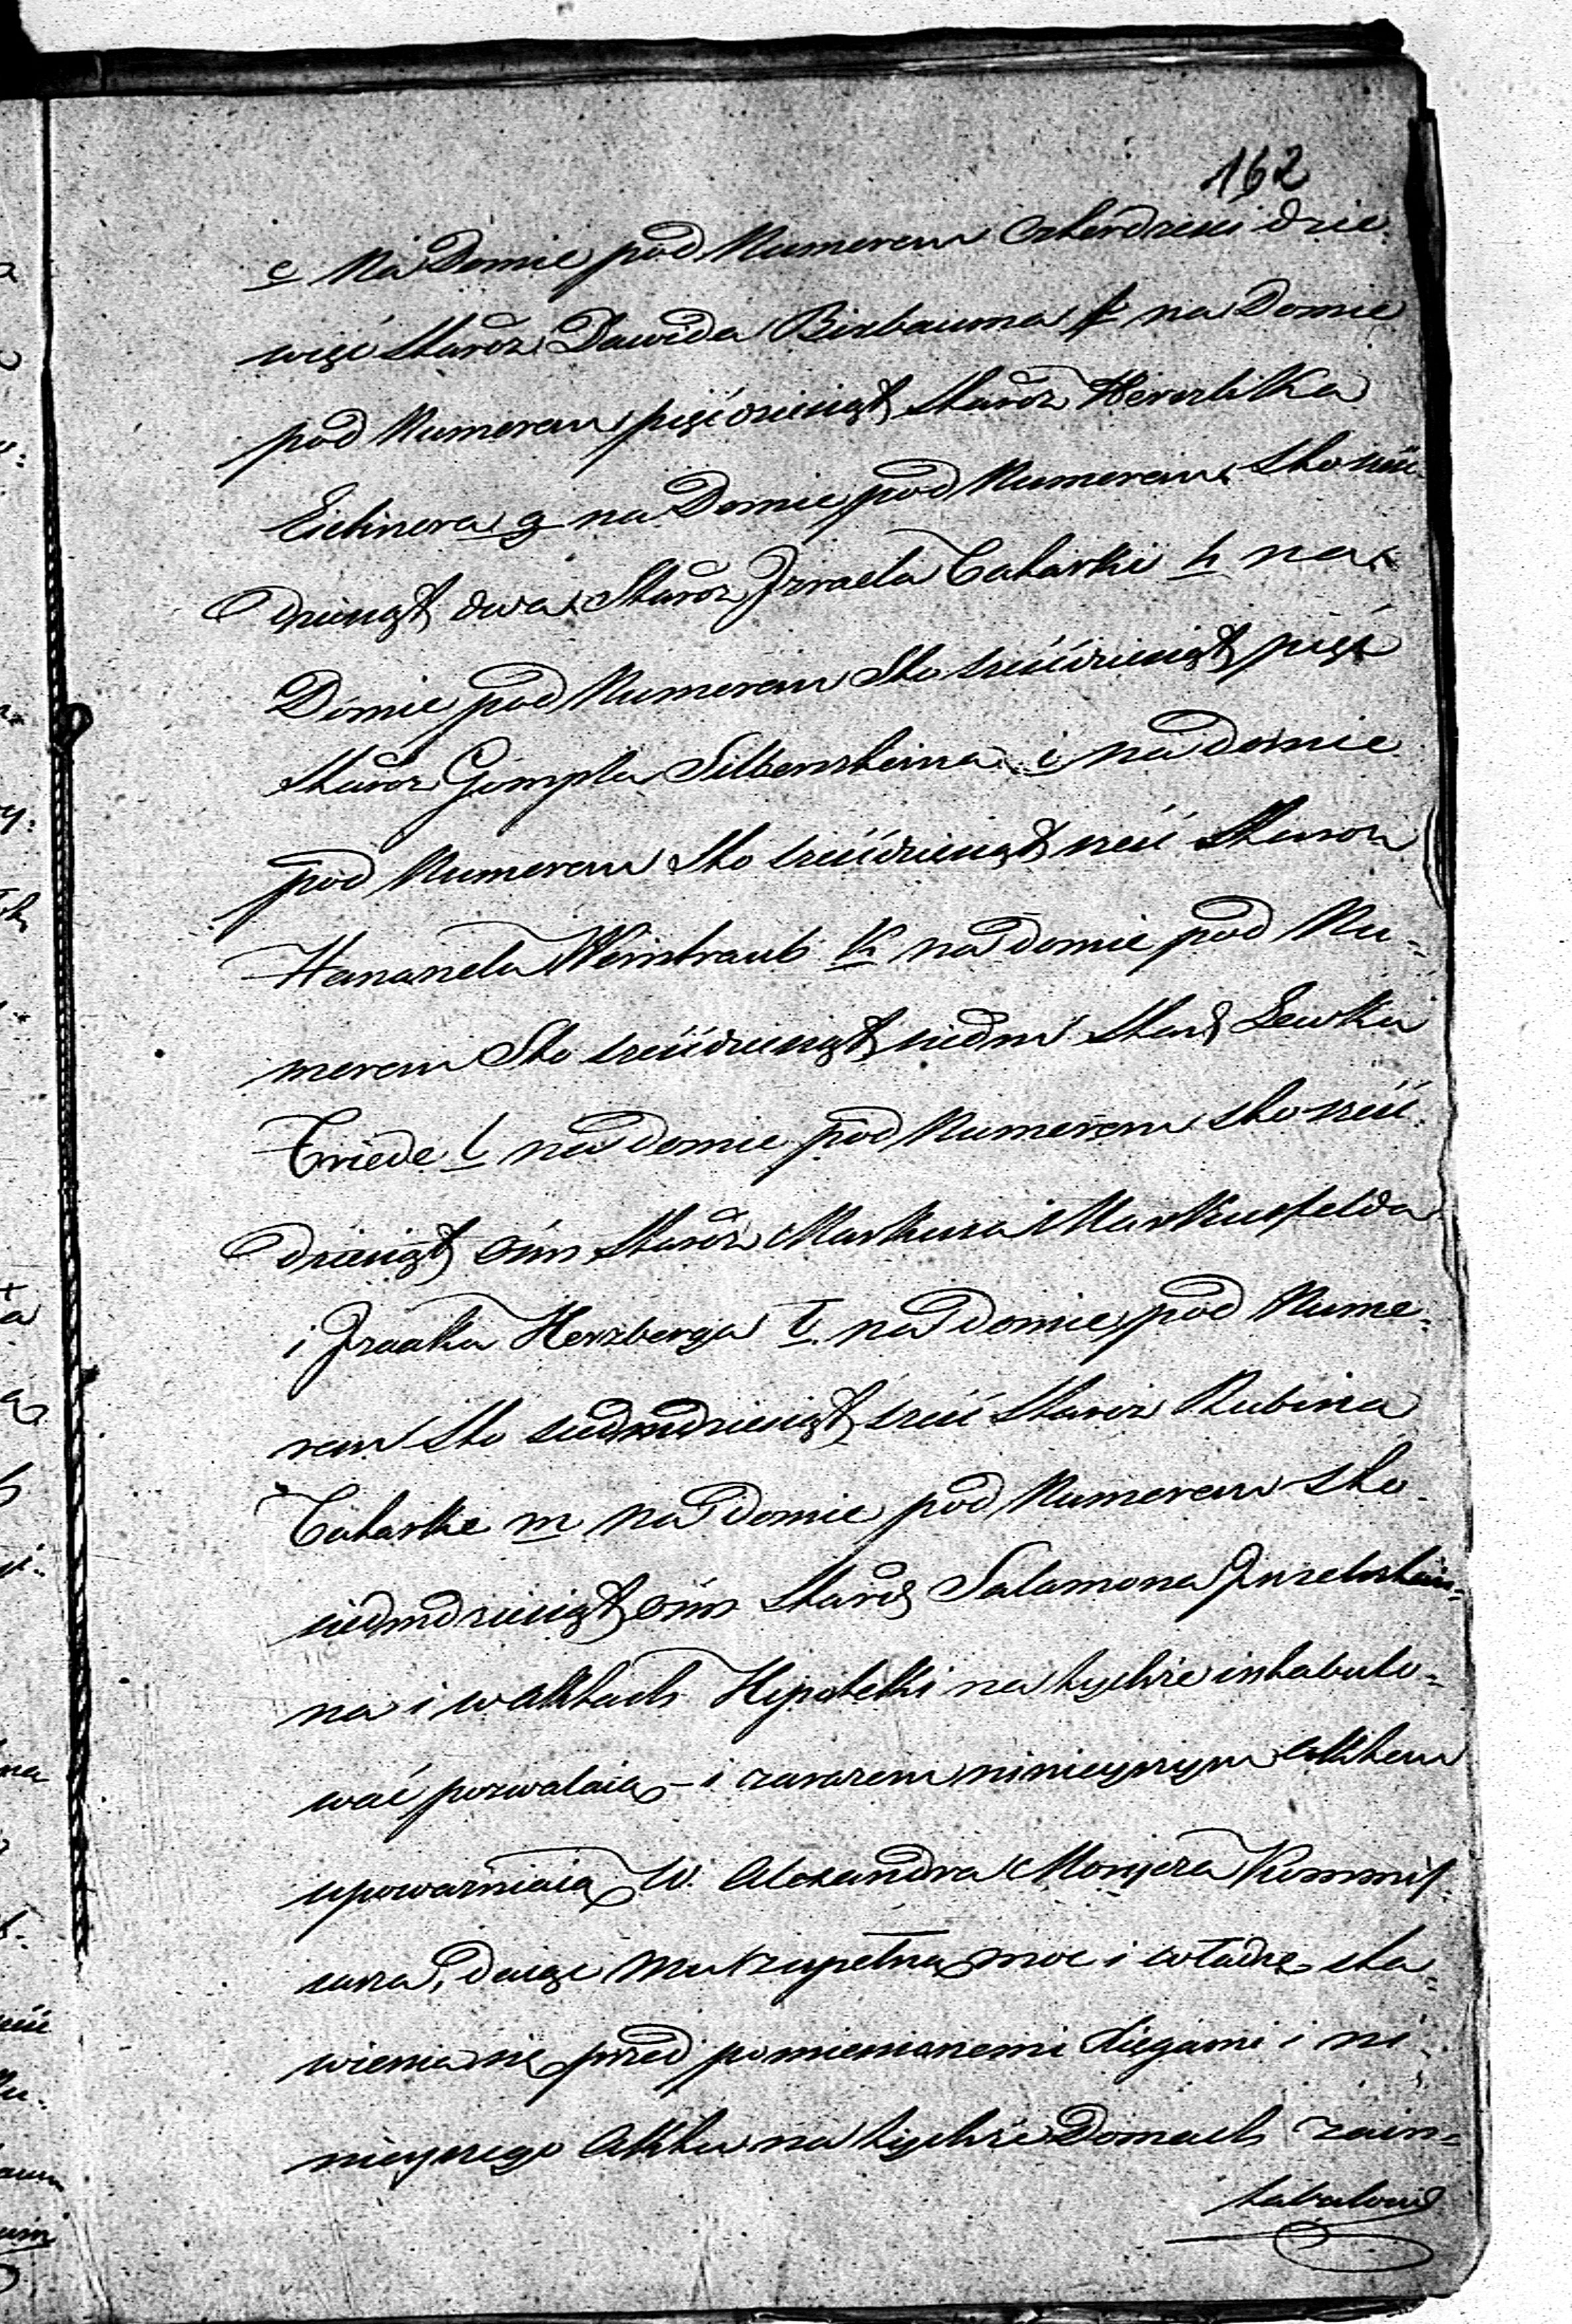 162
e Na Domie pod Numerem czterdzieści dzie-
więć Staroz. Dawida Birbauma f na Domie
pod Numerem pięćdziesiąt Staroz. Herszlika
Eichnera g na Domie pod Numerem sto sześć-
dziesiąt dwa Staroz. Izraela Tatarki h na
Domie pod Numerem Sto sześćdziesiąt pięć
Staroz. Gimpla Silbersteina i na domie
pod Numerem Sto sześćdziesiąt sześć Staroz.
Hananela Weintraub k na domie pod Nu-
merem Sto sześćdziesiąt siedm Staroz. Lewka
Friede l na domie pod Numerem sto sześć-
dziesiąt óśm Staroz. Markusa Markusfelda
i Izaaka Herzberga ł na domie pod Nume-
rem Sto siedmdziesiąt sześć Staroz. Rubina
Tatarke m na domie pod Numerem sto
siedmdziesiąt óśm Staroz. Salamona
na i w aktach Hipoteki na tychże intabulo-
wać pozwalaią – i zarazem ninieyszym Aktem
upoważniaią W. Alexandra Kommis-
sarza, daiąc mu zupełną moc i władzę sta-
wienia się przed pomienionemi Xięgami i ni-
nieyszego Aktu na tychże Domach zain-
tabulowa